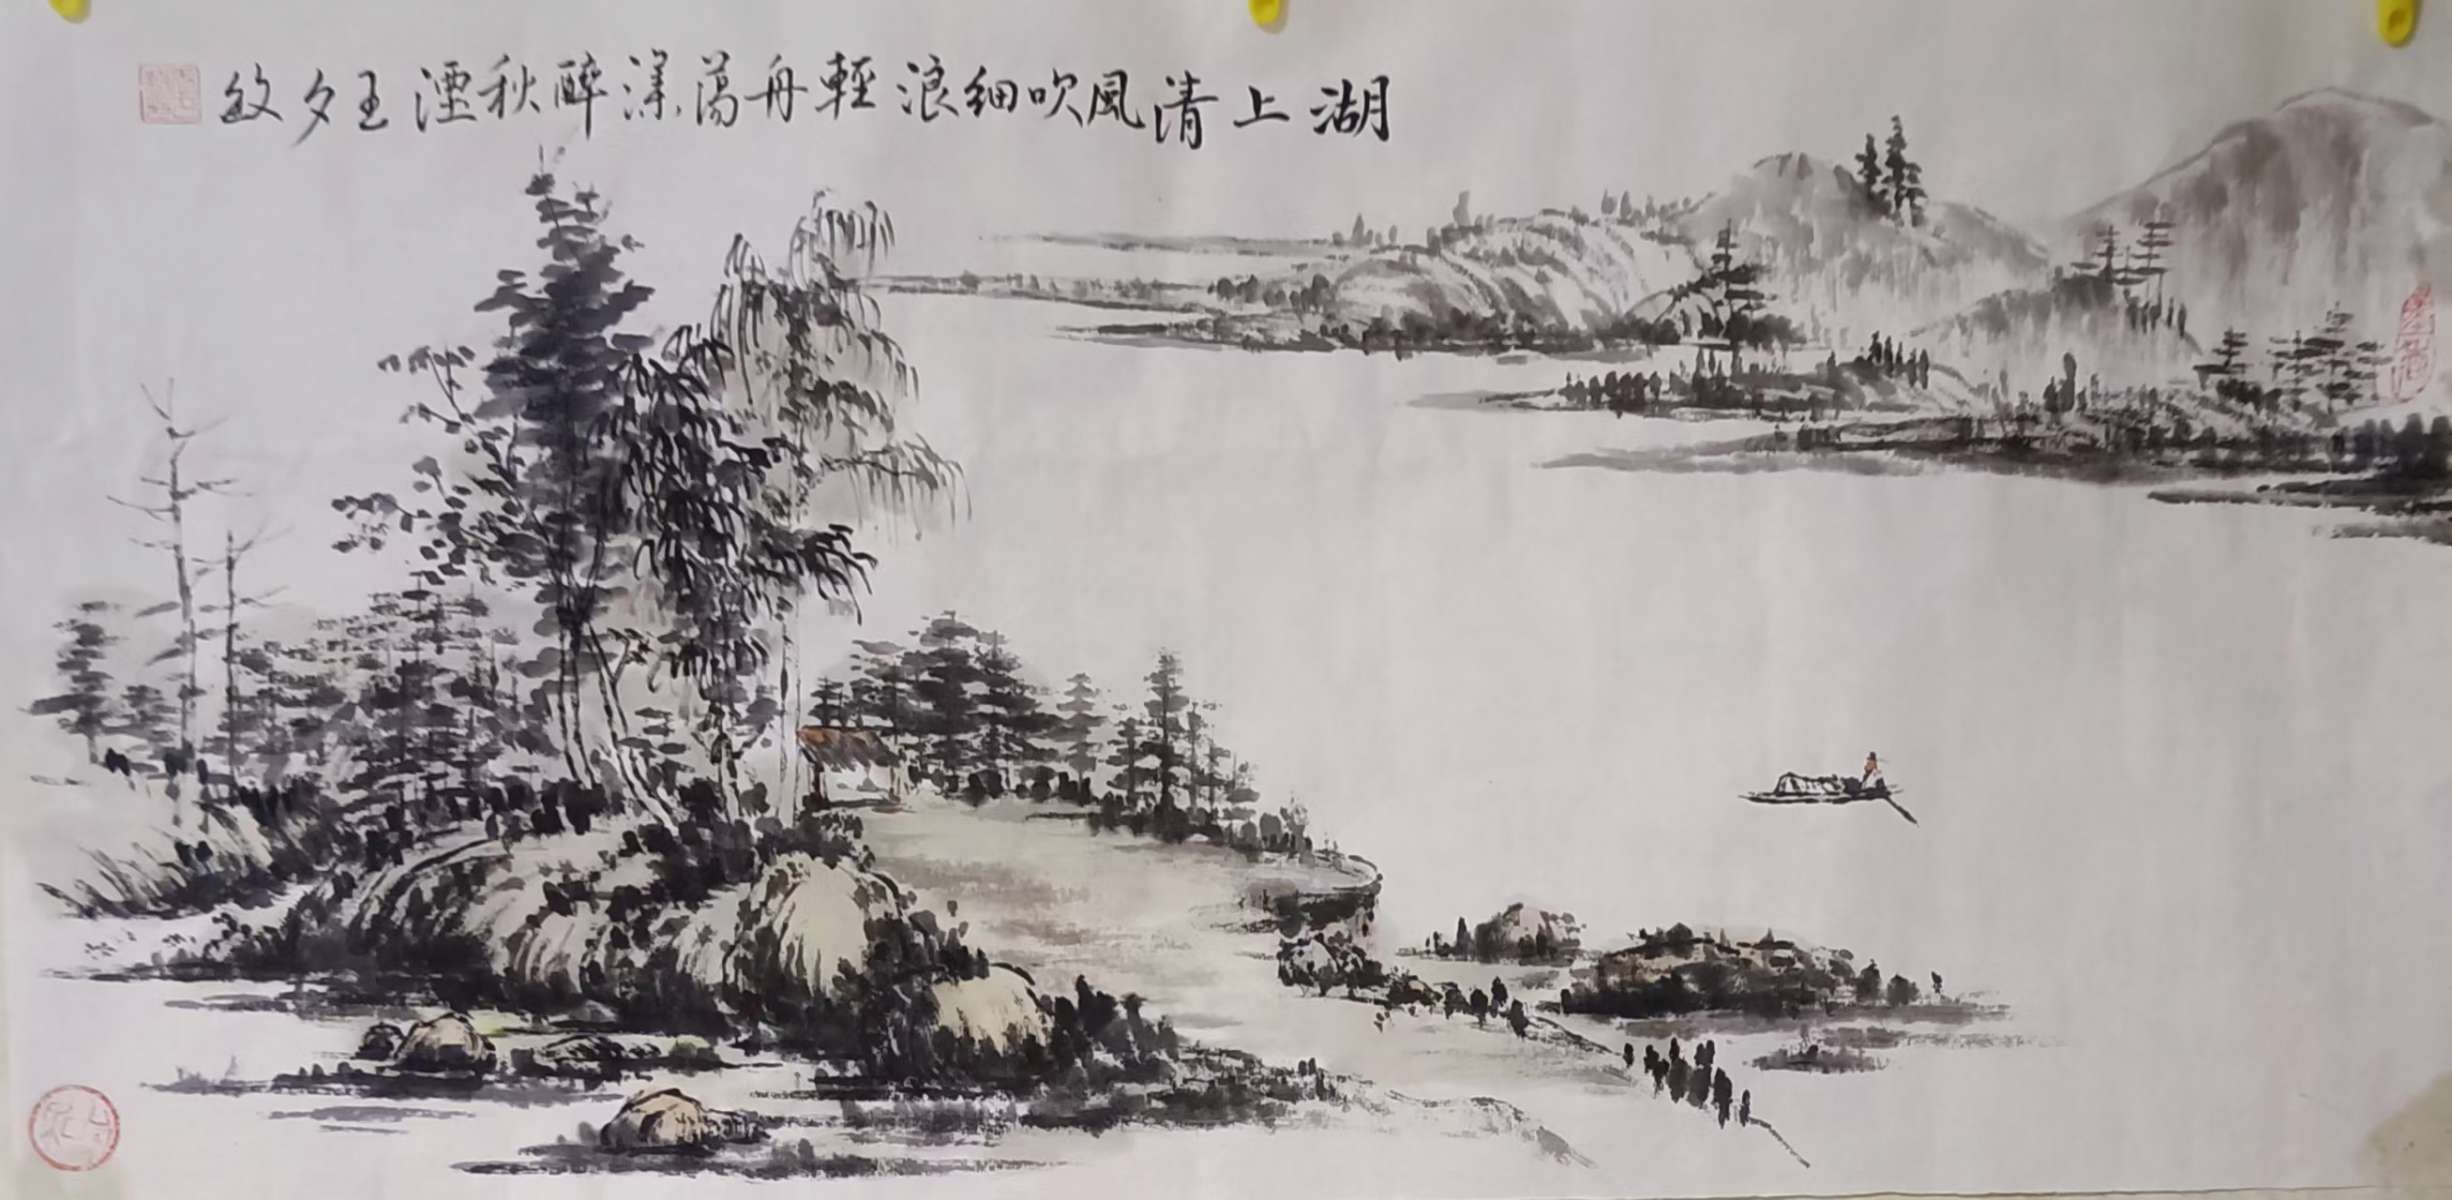 湖上清風吹細浪輕舟蕩漾醉秋湮王夕敏